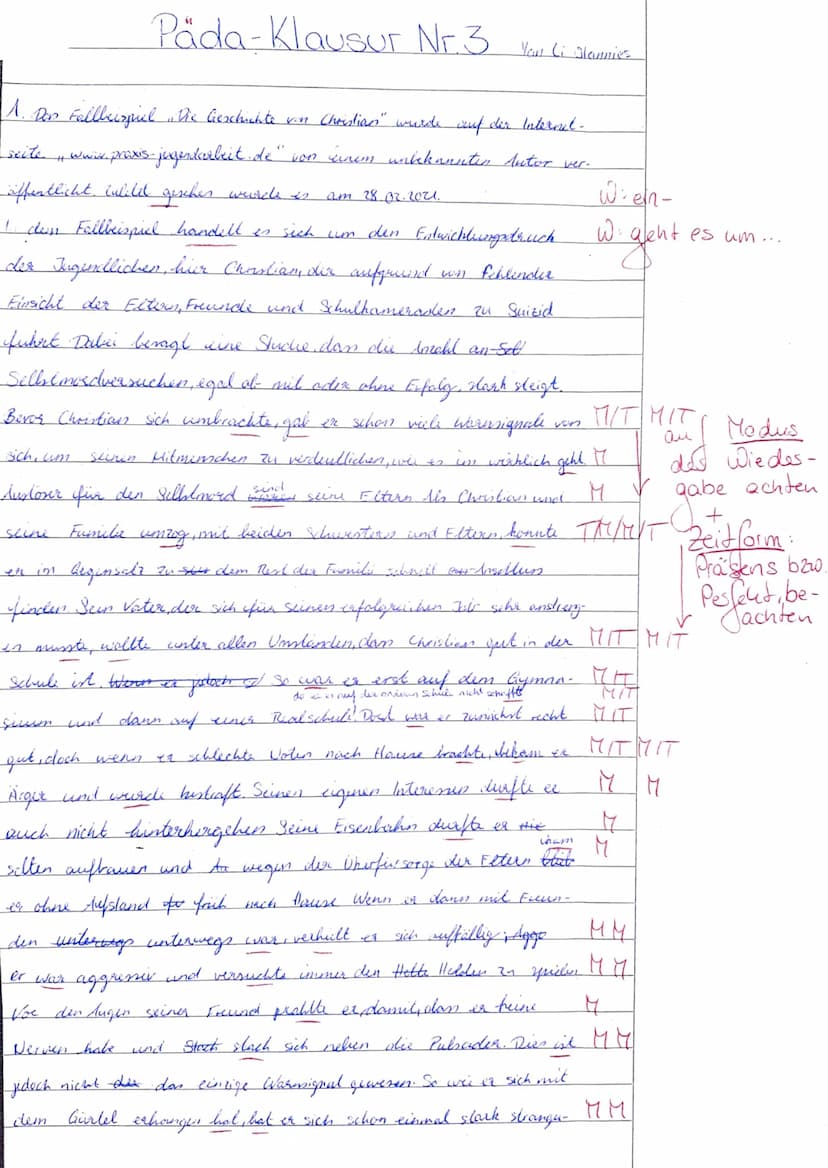 Päda-Klausur Nr.3
1. Das Fallbeispiel „Die Geschichte von Christian" wurde auf der Internet-
seite „www.praxis-jugendarbeit.de" von einem unbekannten Autor ver-
öffentlicht. gesehen wurde es am 28.02.2021.
W: ein-
dem Fallbeispiel handelt es sich um den Entwicklungsdruck
W: geht es um...
der Jugendlichen, hier Christian, der aufgrund von fehlender
Einsicht der Eltern, Freunde und Schulkameraden zu Suizid
führt. Dabei besagt eine Studie, dass die Anzahl an Sel
Selbstmordversuchen, egal ob mit oder ohne Erfolg, stark steigt.
Bevor Christian sich umbrachte, gab er schon viele Warnsignale von
M/T M/T
sich, um seinen Mitmenschen zu verdeutlichen, wie es im wirklich geht.
M
Auslöser für den Selbstmord sind seine Eltern. Als Christian und
M
seine Familie umzog, mit beiden Schwestern und Eltern, konnte
T/M/M/T
er im Gegensatz zu dem Rest der Famili schnell Anschluss
finden. Sein Vater, der sich für seinen erfolgreichen Job sehr anstreng-
en musste, wollte unter allen Umständen, dass Christian gut in der
M/T M/T
Schule ist. Wenn er jedoch So war er erst auf dem Gymna-
M/T
da er auf der anderen Schule nicht schaffte
M/T
sium und dann auf einer Realschule! Dort war er zunächst recht
M/T
gut, doch wenn er schlechte Noten nach Hause brachte, bekam er
M/T M/T
Ärger und wurde bestraft. Seinen eigenen Interessen durfte er
M M
auch nicht hinterhergehen. Seine Eisenbahn durfte er nie
M
selten aufbauen und wegen der Überfürsorge der Eltern kam
M
er ohne Aufstand früh nach Hause. Wenn er dann mit Freun-
den unterwegs unterwegs war, verhielt er sich auffällig; Aggo
M M
er war aggressiv und versuchte immer den Helde Helden zu spielen.
M M
Vor den Augen seiner Freund prahlte er, damit, dass er keine
M
Nerven habe und Stach stach sich neben die Pulsader. Dies ist
M M
jedoch nicht die das einzige Warnsignal gewesen. So wie er sich mit
dem Gürtel erhangen hat, hat er sich schon einmal stark strangu-
M M
auf
Modus
das Wieder-
gabe achten
+
Zeitform:
Präsens bzw.
Perfekt, be-
achten